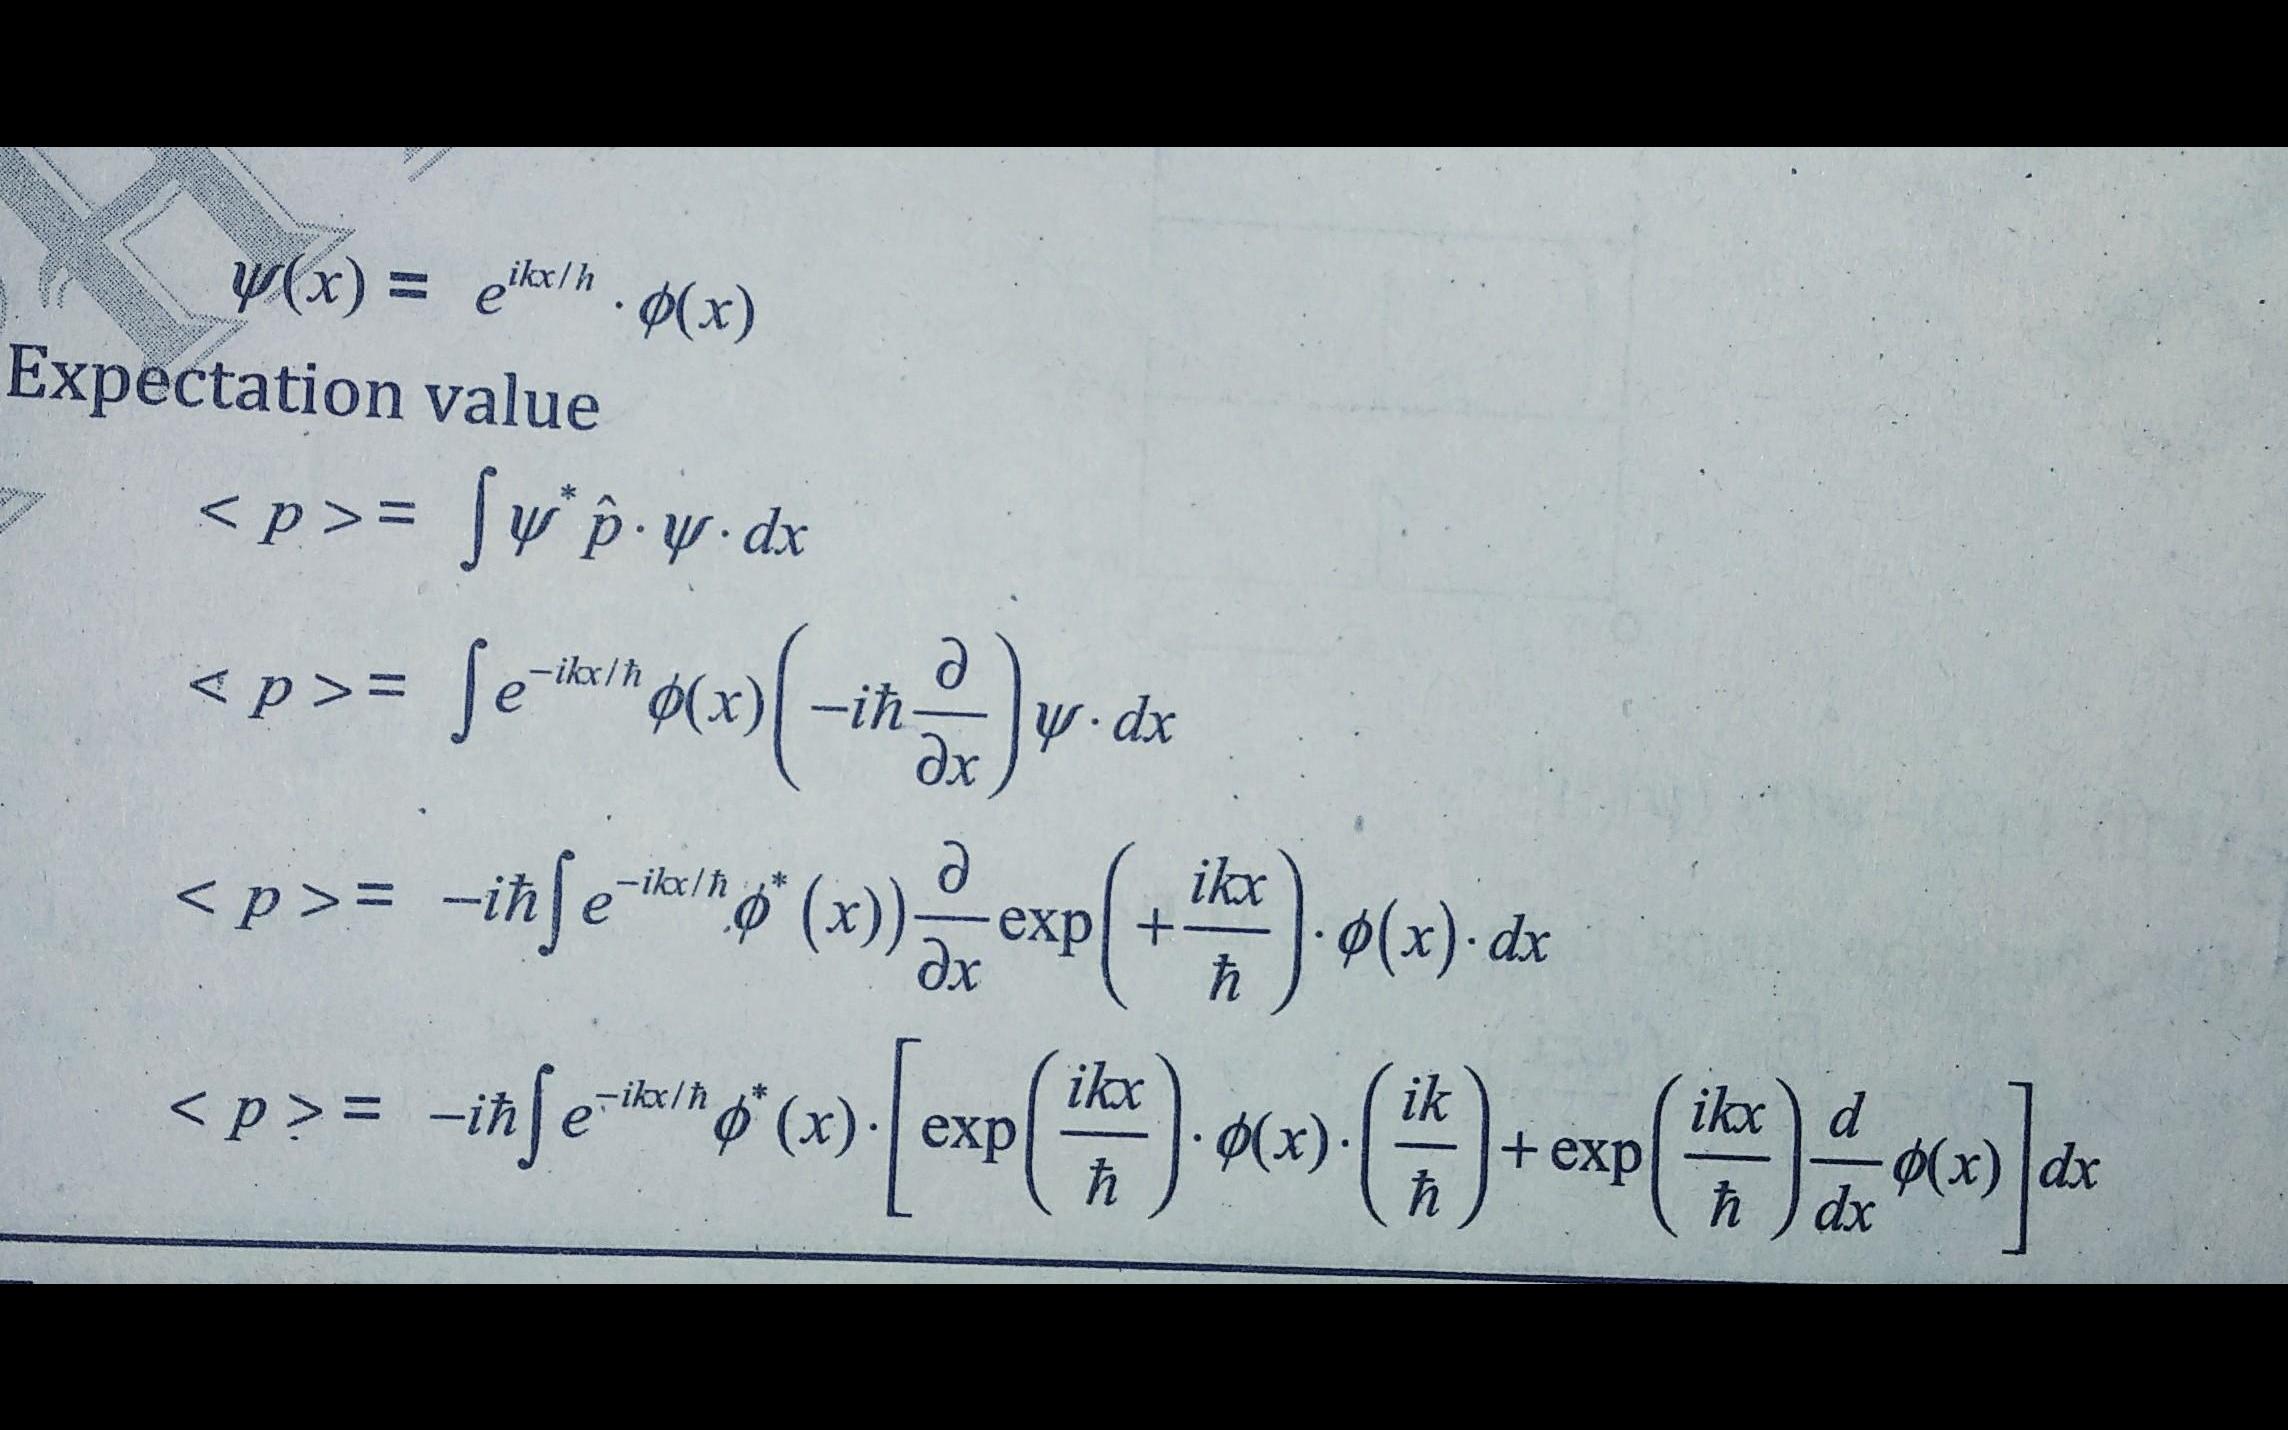 ψ(x) = e^{ikx/h} · ϕ(x)
Expectation value
< p > = ∫ ψ^* p̂ · ψ · dx
< p > = ∫ e^{-ikx/ħ} ϕ(x) (-iħ ∂/∂x) ψ · dx
< p > = -iħ ∫ e^{-ikx/ħ} ϕ^* (x)) ∂/∂x exp(+ ikx/ħ) · ϕ(x) · dx
< p > = -iħ ∫ e^{-ikx/ħ} ϕ^* (x) · [exp(ikx/ħ) · ϕ(x) · (ik/ħ) + exp(ikx/ħ) d/dx ϕ(x)] dx